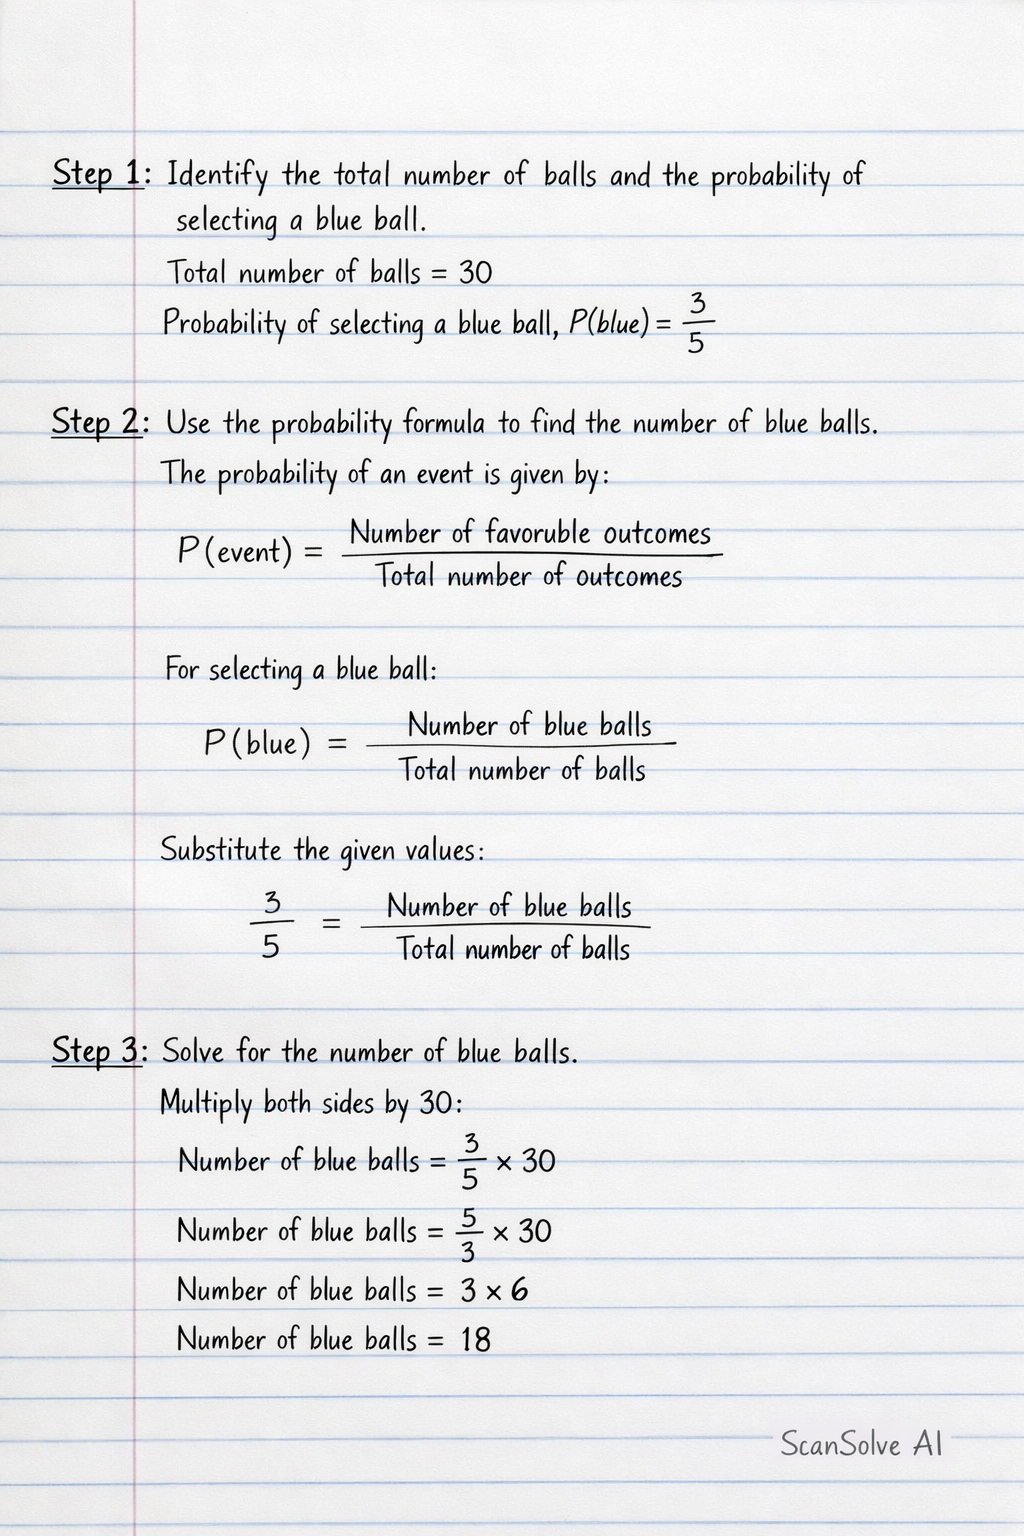 Step 1: Identify the total number of balls and the probability of
selecting a blue ball.
Total number of balls = 30
Probability of selecting a blue ball, P(blue) = 3/5
Step 2: Use the probability formula to find the number of blue balls.
The probability of an event is given by:
P(event) = Number of favoruble outcomes / Total number of outcomes
For selecting a blue ball:
P(blue) = Number of blue balls / Total number of balls
Substitute the given values:
3/5 = Number of blue balls / Total number of balls
Step 3: Solve for the number of blue balls.
Multiply both sides by 30:
Number of blue balls = 3/5 × 30
Number of blue balls = 5/3 × 30
Number of blue balls = 3 × 6
Number of blue balls = 18
ScanSolve AI